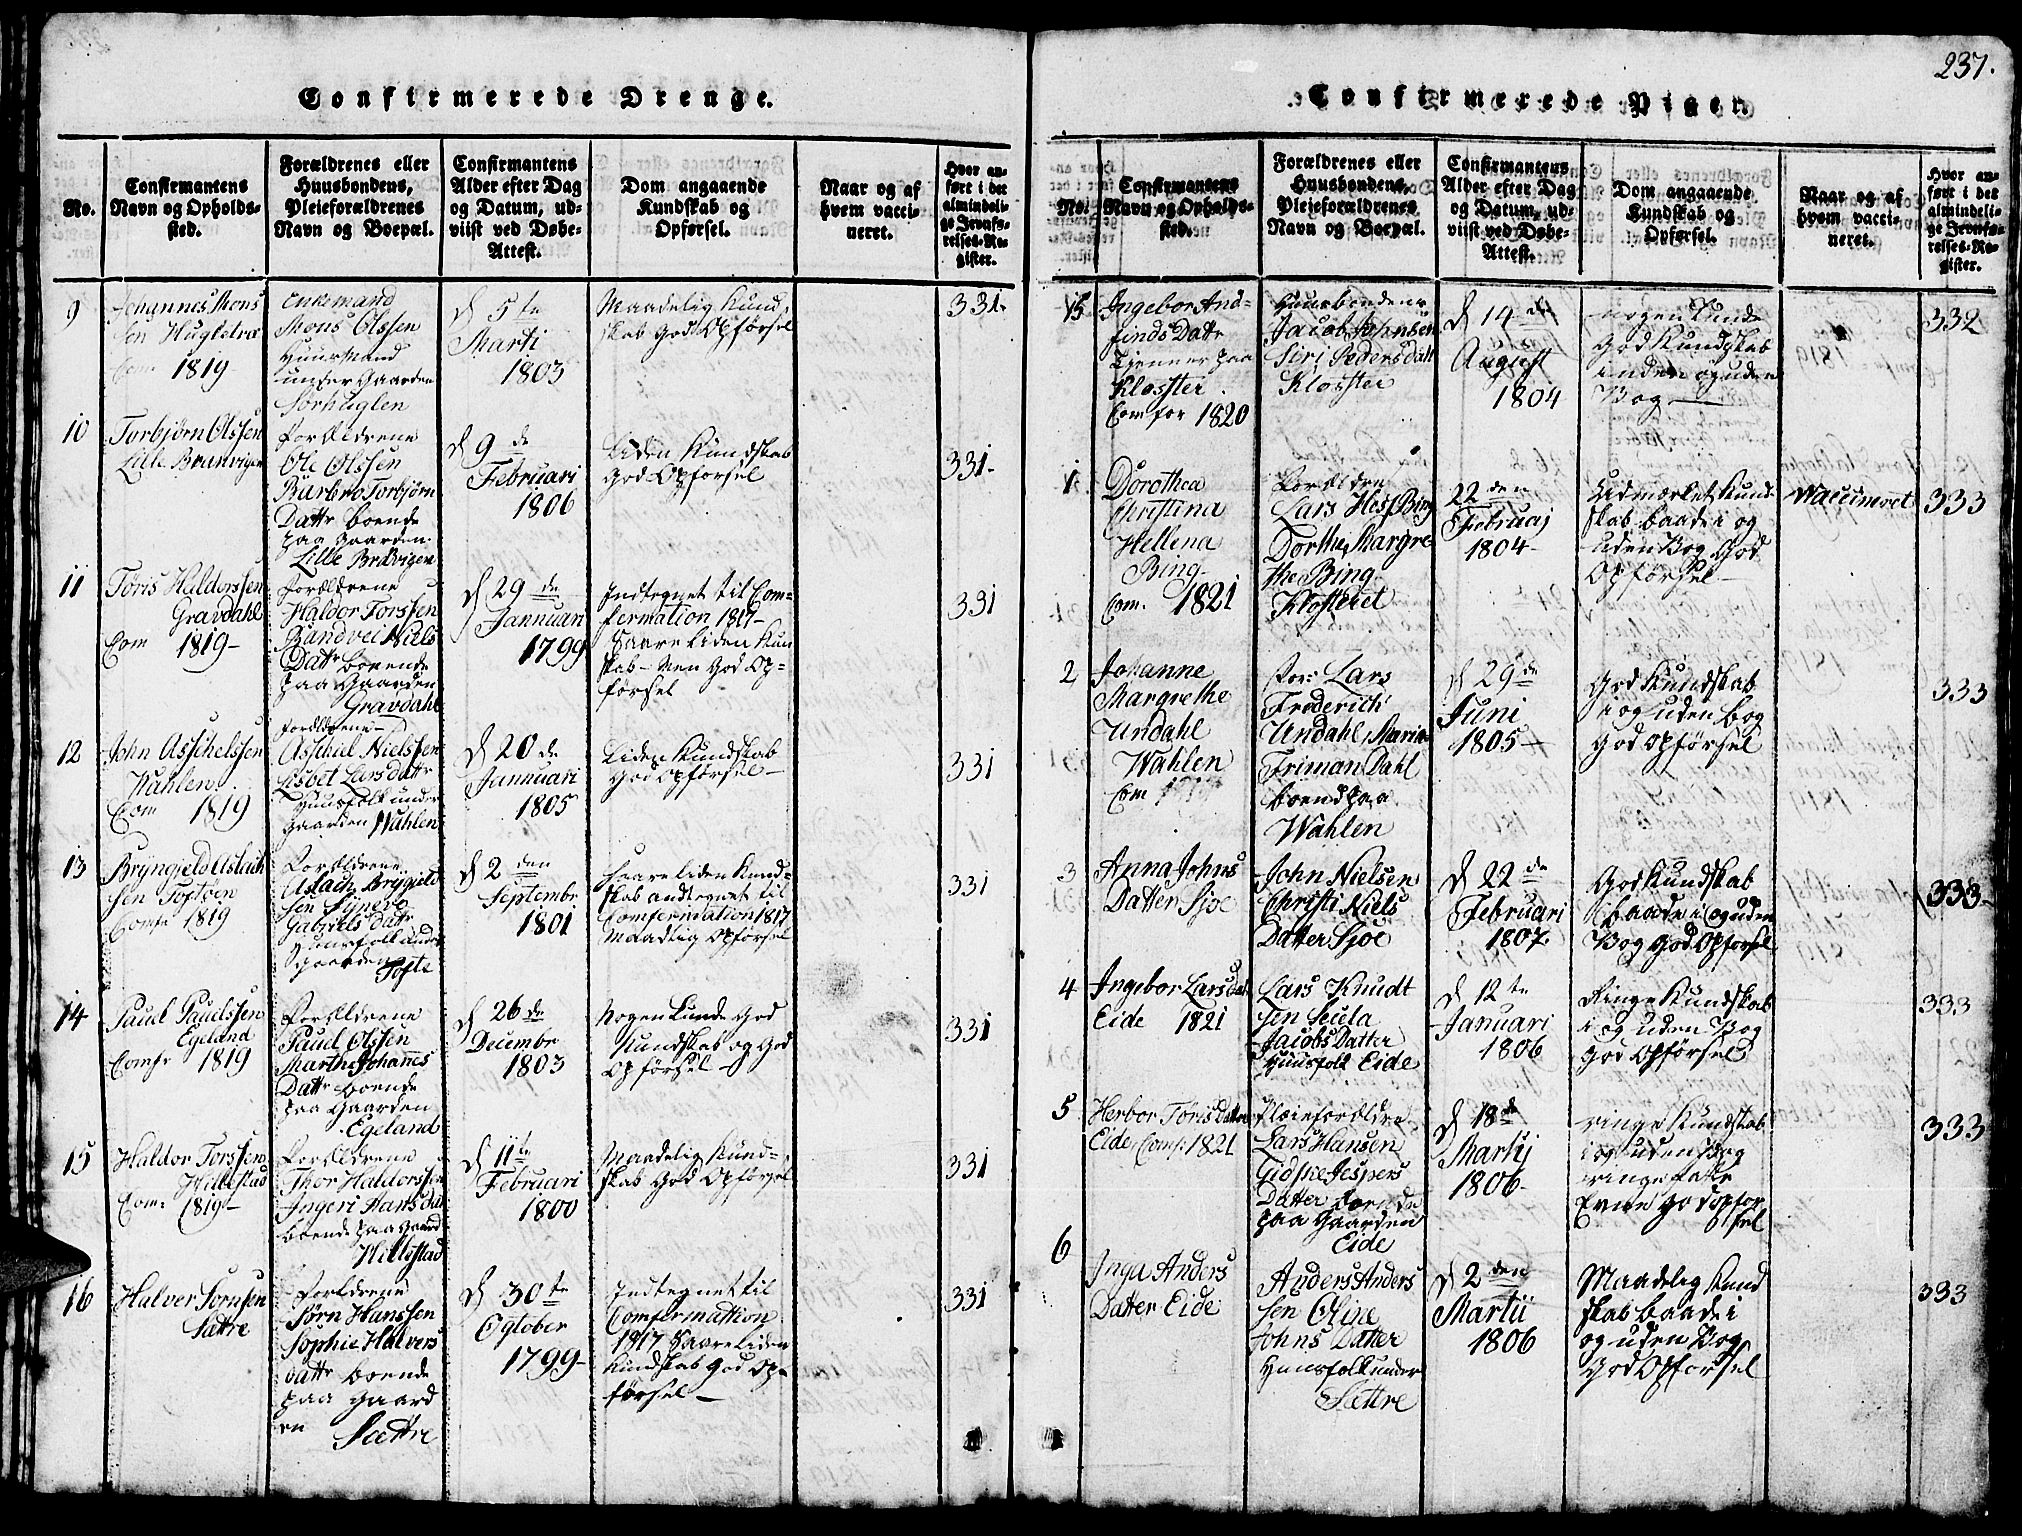 237.
Confirmerede Drenge.
No.
Confirmantens
Navn og Opholds-
sted.
Forældrenes eller
Huusbondens,
Pleieforældrenes
Navn og Boepæl.
Confirmantens
Alder efter Dag
og Datum, ud-
viist ved Døbe-
Attest.
Dom angaaende
Kundskab og
Opførsel.
Naar og af
hvem vacci-
neret.
Hvor an-
ført i det
almindeli-
ge Jevnfø-
relses-Re-
gister.
9
Johannes Mons
sen Hugletvæ
Com 1819
Enkemand
Mons Olssen
Huusmand
under Gaarden
Sørhuglen
d 5te
Marti
1803
Maadelig Kund-
skab Godt Opførsel
331.
10
Torbjørn Olssen
Lille Brunvigen
Forældrene
Ole Olssen
Barbro Torbjørn
Dattr boende
paa Gaarden
Lille Brüvigen
d 9de
Februari
1806
Liden Kundskab
God Opførsel
331-
11
Tøris Haldorssen
Gravdahl
Com 1819-
Forældrene
Haldor Torssen
Randvei Niels
Dattr boende
paa Gaarden
Gravdahl
d 29de
Jannuari
1799
Indtegnet til Com-
fermation 1817-
Saare liden Kun
skab - Men God Op-
førsel
331
12
John Asschelssen
Wahlen
Com 1819
Forældrene
Asschiel Nielssen
Lisbet Larsdattr
Huusfolk under
Gaarden Wahlen
d 20de
Jannuari
1805
Liden Kundskab
God Opførsel-
331
13
Bryngjeld Aslach
sen Toftøen
Comfr 1819
Forældrene
Aslach Brÿgield
sen Synevo
Gabriels dattr
Huusfolk under
Gaarden Tofte
d 2den
Septembr
1801
Saare liden Kund-
skab andtegnet til
Comfermation 1817
Maadlig Opførsel
331
14
Paul Paulssen
Egeland
Comfr 1819
Forældrene
Paul Olssen
Marthe Johanes
Dattr boende
paa Gaarden
Egeland
d 26de
Decembr
1803
Nogenlunde God
Kundskab og God
Opførsel -
331
15
Haldor Torssen
Hillestad
Com: 1819-
Forældrene
Thor Haldorssen
Ingeri Hans dat
boende paa Gaard
Hillestad
d 11te
Februari
1800
Maadelig Kund-
skab God Opførsel
331
16
Halver Sørnsen
Sættre
Forældrene
Sørn Hanssen
Sophie Halvers
dattr boende
paa Gaard
en Sættre
d 30te
Ogtober
1799-
Indtegnet til
Comfermattion
1817 Saare liden
Kundskab God Op-
førsel -
331
Confirmerede Piger.
No.
Confirmantens
Navn og Opholds-
sted.
Forældrenes eller
Huusbondens,
Pleieforældrenes
Navn og Boepæl.
Confirmantens
Alder efter Dag
og Datum, ud-
viist ved Døbe-
Attest.
Dom angaaende
Kundskab og
Opførsel.
Naar og af
hvem vacci-
neret.
Hvor an-
ført i det
almindeli-
ge Jevnfø-
relses-Re-
gister.
15
Ingebor And-
finds Dattr
Tjener paa
Klosster
Com for 1820
Huusbondens
Jacob Johnsen
Siri Pedersdatt
Klosster
d 14de
August
1804
nogenlunde
God Kundskab
inden og uden
Bog -
332
1
Dorothea
Christina
Hellena
Bing
Com. 1821
Forældre
Lars Hess Bing
Dorthe Margre
the Bing
Klosteret
22den
Februaj
1804-
Udmerket Kund-
skab baade i og
uden Bog God
Opførsel-
Waccineret
333
2
Johanne
Margrethe
Undahl
Wahlen
Com
For: Lars
Frederich
Undahl, Maria
Friman Dahl
boend paa
Wahlen
d 29de
Juni
1805-
God Kundskab
i og uden Bog
God Opførsel
333
3
Anna Johns
Datter Sjoe
John Nielsen
Christi Niels
Datter Sjoe
d 22de
Februari
1807.
God Kundskab
baade i og uden
Bog God Opførsel
333-
4
Ingebor Larsdat
Eide 1821
Lars Knudt
sen Seiela
Jacobs Datter
Huusfolk Eide
d 12te
Januari
1806
Ringe Kundskab
i og uden Bog
God Opførsel
333
5
Herbor Tøris datter
Eide, Comf: 1821
Pleieforældre
Lars Hansen
Gidske Jespers
Datter boende
paa Gaarden
Eide
d 18de
Martij
1806-
ringe Kundskab
i og uden Bog
ringe fatte
Evne God opfør
sel
333
6
Inga Anders
Datter Eide
Anders Anders
sen Oline
Johns Datter
Huusfolk under
Sættre
d 2den
Martii
1806
Maadelig Kund
skab baade i
og uden Bog
God Opførsel
333